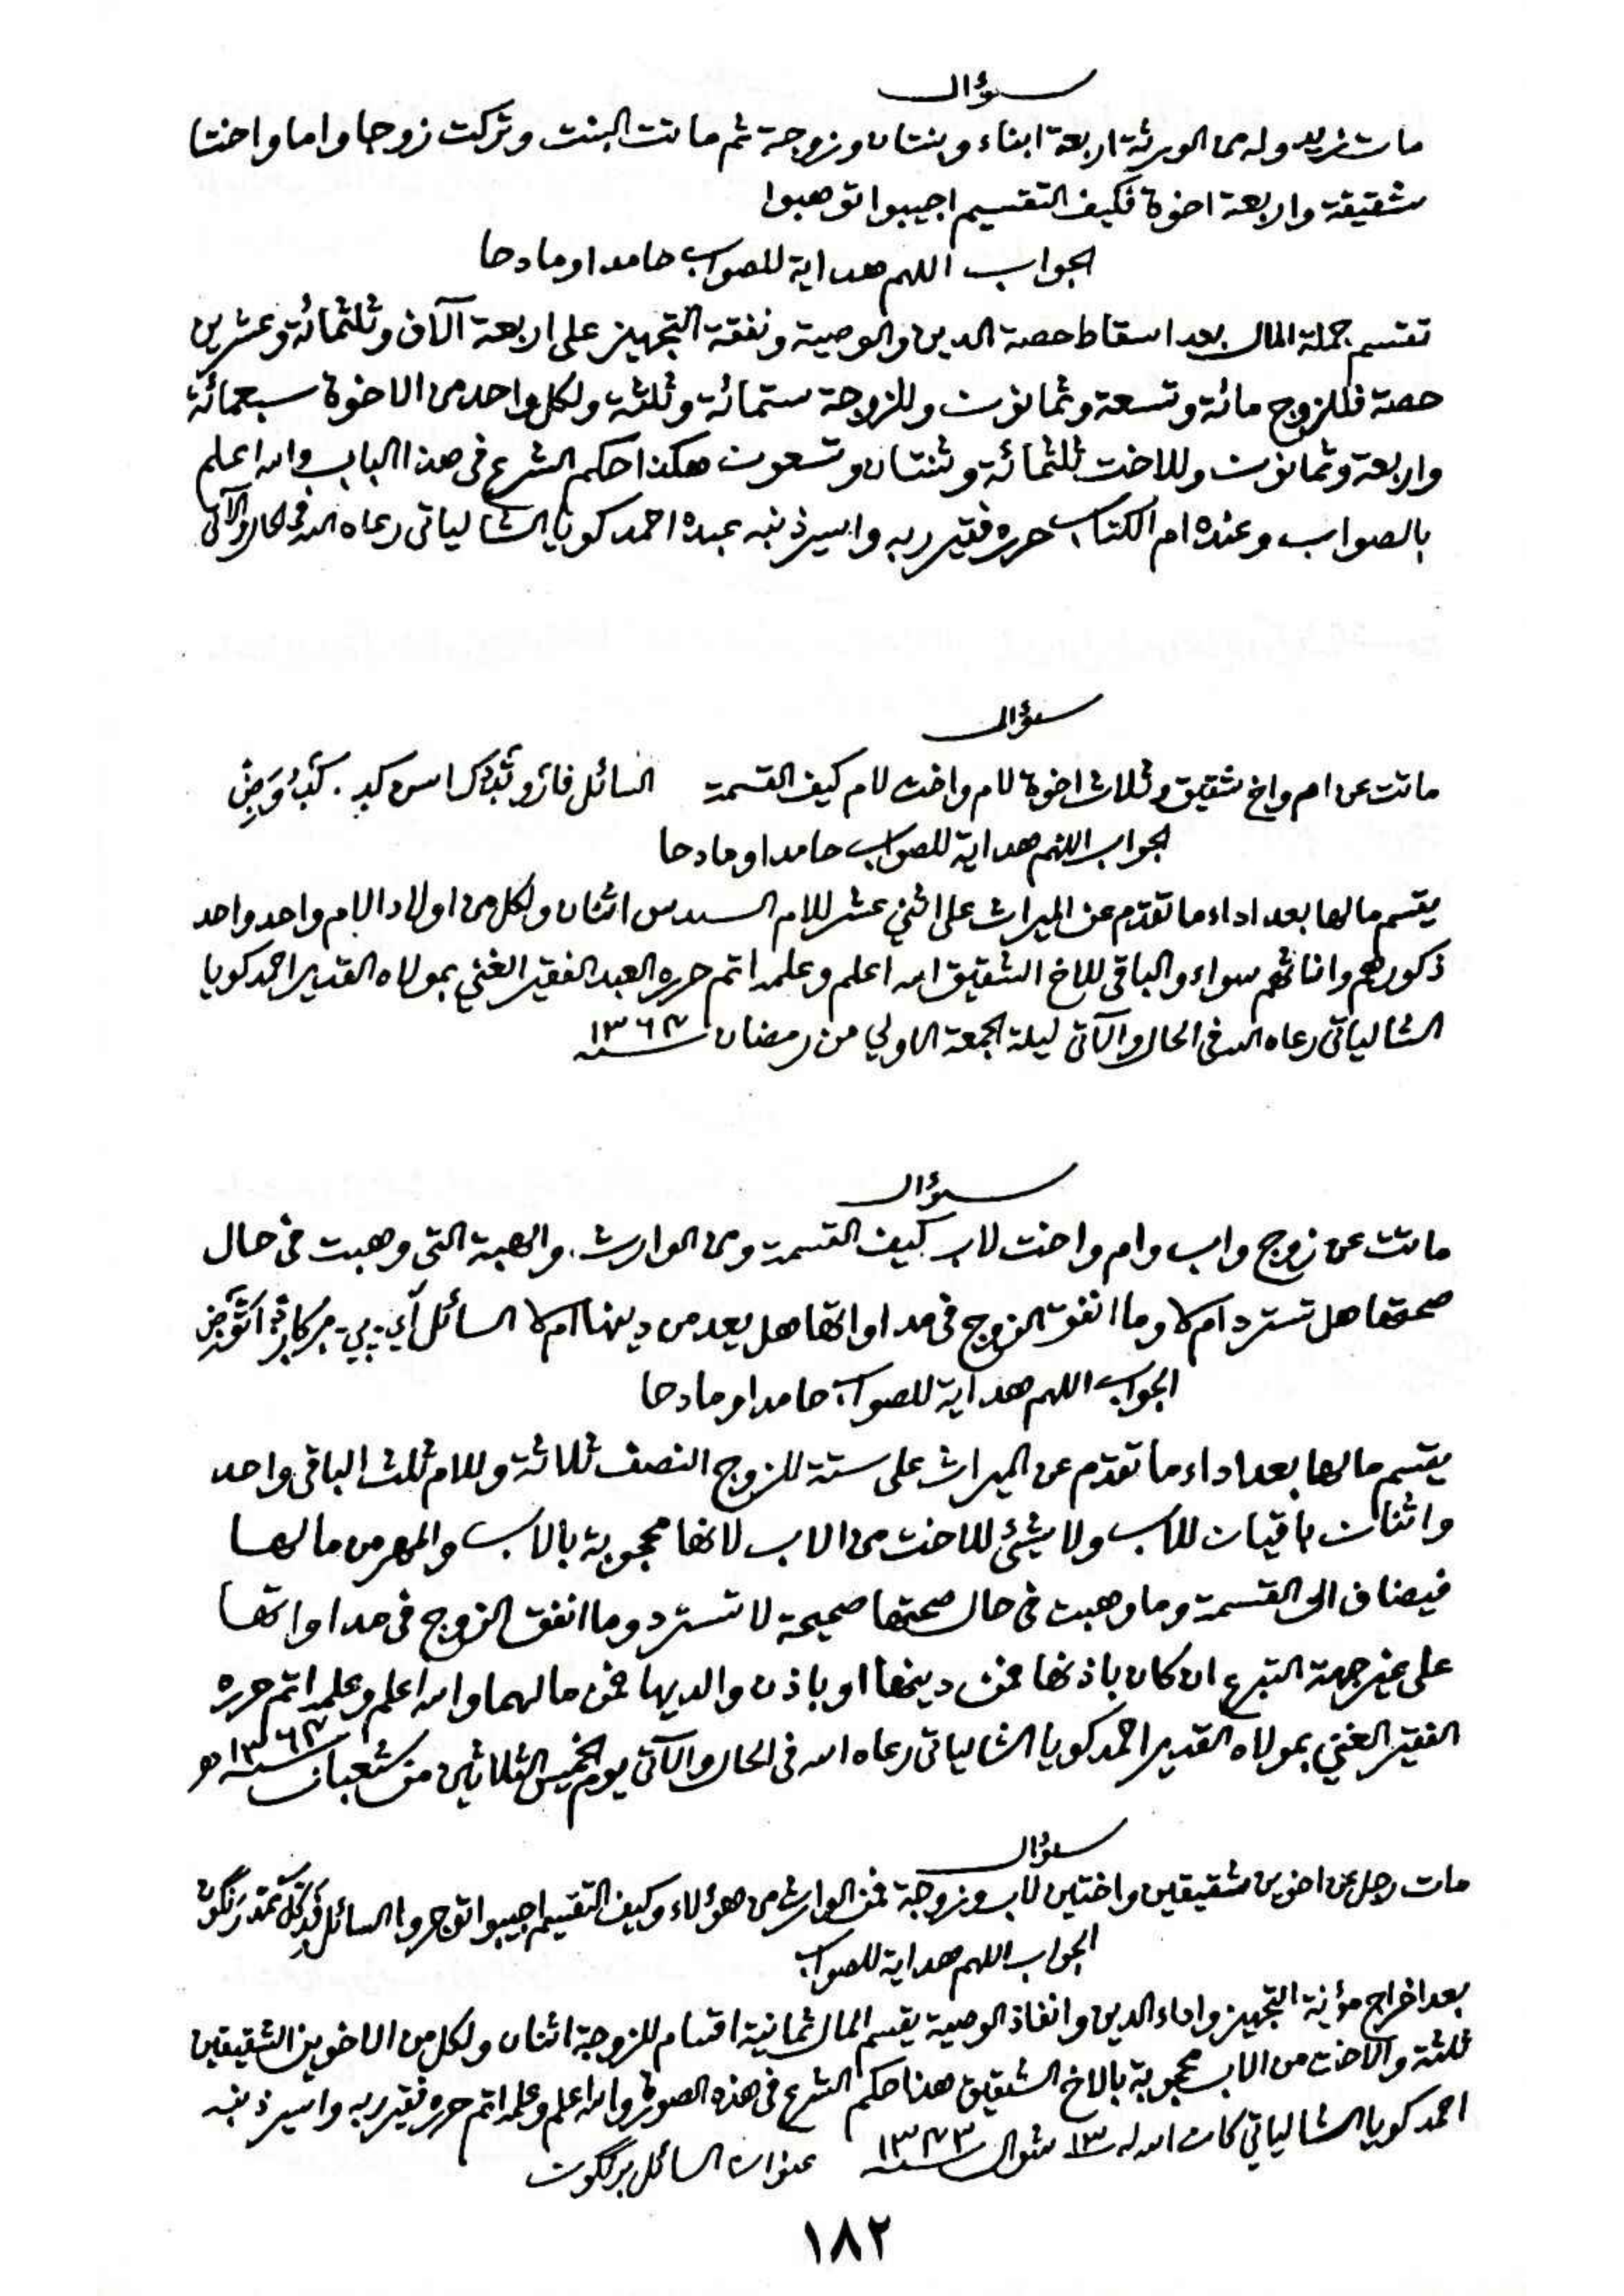 سؤال
مات زيد وله من الورثة اربعة ابناء وبنتان وزوجة ثم ماتت البنت وتركت زوجا واما واختا
شقيقة واربعة اخوة فكيف التقسيم اجيبوا توهبوا
الجواب اللهم هداية للصواب حامدا ومادحا
تقسم جملة المال بعد اسقاط حصة الدين والوصية ونفقة التجهيز على اربعة آلاف وثلثمائة وعشرين
حصة فللزوج مائة وتسعة وثمانون وللزوجة ستمائة وثلثة ولكل واحد من الاخوة سبعمائة
واربعة وثمانون وللاخت ثلثمائة وثنتان وتسعون هكذا حكم الشرع فى هذا الباب والله اعلم
بالصواب وعنده ام الكتاب حرره فقير ربه واسير ذنبه عبده احمد كويا الشالياتى رعاه الله فى الحال والآتى
سؤال
ماتت عن ام واخ شقيق وثلاث اخوة لام واخت لام كيف القسمة السائل
الجواب اللهم هداية للصواب حامدا ومادحا
يقسم مالها بعد اداء ما تقدم عن الميراث على اثني عشر للام السدس اثنان ولكل من اولاد الام واحد واحد
ذكورهم واناثهم سواء والباقى للاخ الشقيق الله اعلم وعلمه اتم حرره العبد الفقير الغني بمولاه القدير احمد كويا
الشالياتى رعاه الله فى الحال والآتى ليلة الجمعة الاولي من رمضان سنة
سؤال
ماتت عن زوج واب وام واخت لاب كيف القسمة ومن الوارث. والهبة التى وهبت فى حال
صحتها هل تسترد ام لا وما انفق الزوج فى مداواتها هل يعد من دينها ام لا السائل
الجواب اللهم هداية للصواب حامدا ومادحا
يقسم مالها بعد اداء ما تقدم عن الميراث على ستة للزوج النصف ثلاثة وللام ثلث الباقى واحد
واثنان باقيان للاب ولا شئ للاخت من الاب لانها محجوبة بالاب والمهر من مالها
فيضاف الى القسمة وما وهبت فى حال صحتها صحيحة لا تسترد وما انفق الزوج فى مداواتها
على غير جهة التبرع ان كان باذنها فمن دينها او باذن والديها فمن مالهما والله اعلم وعلمه اتم حرره
الفقير الغني بمولاه القدير احمد كويا الشالياتى رعاه الله فى الحال والآتى يوم الخميس الثلاثين من شعبان سنة
سؤال
مات رجل عن اخوين شقيقين واختين لاب وزوجة فمن الوارث من هؤلاء وكيف التقسيم اجيبوا توجروا السائل
الجواب اللهم هداية للصواب
بعد اخراج مؤنة التجهيز واداء الدين وانفاذ الوصية يقسم المال ثمانية اقسام للزوجة اثنان ولكل من الاخوين الشقيقين
ثلثة والاخت من الاب محجوبة بالاخ الشقيق هذا حكم الشرع فى هذه الصورة والله اعلم وعلمه اتم حرره فقير ربه واسير ذنبه
احمد كويا الشالياتي كان الله له ١٣ شوال سنة ١٣٧٣ عنوان السائل
١٨٢